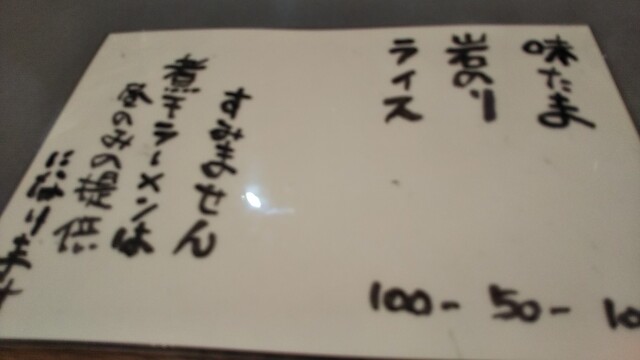 味たま
岩のり
ライス
10
50-
100-
すみません
煮干ラーメンは
夜のみの提供
になります